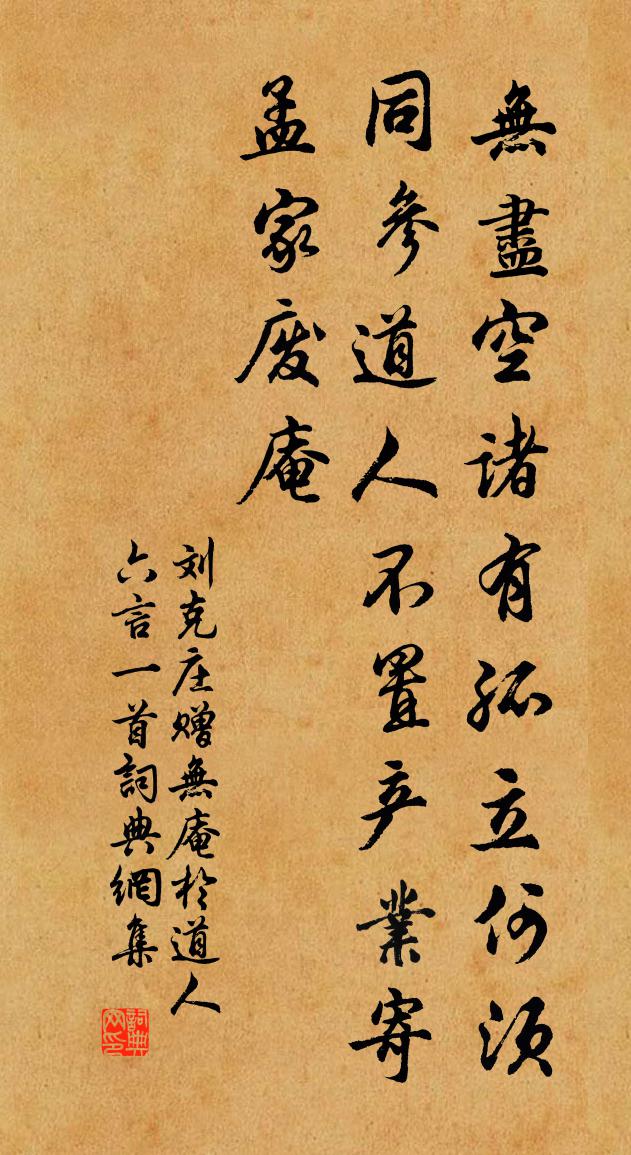 無盡空诸有孤立何须
同參道人不置产業寄
孟家废庵
刘克庄赠無庵於道人
六言一首詞典網集
詞典
网印